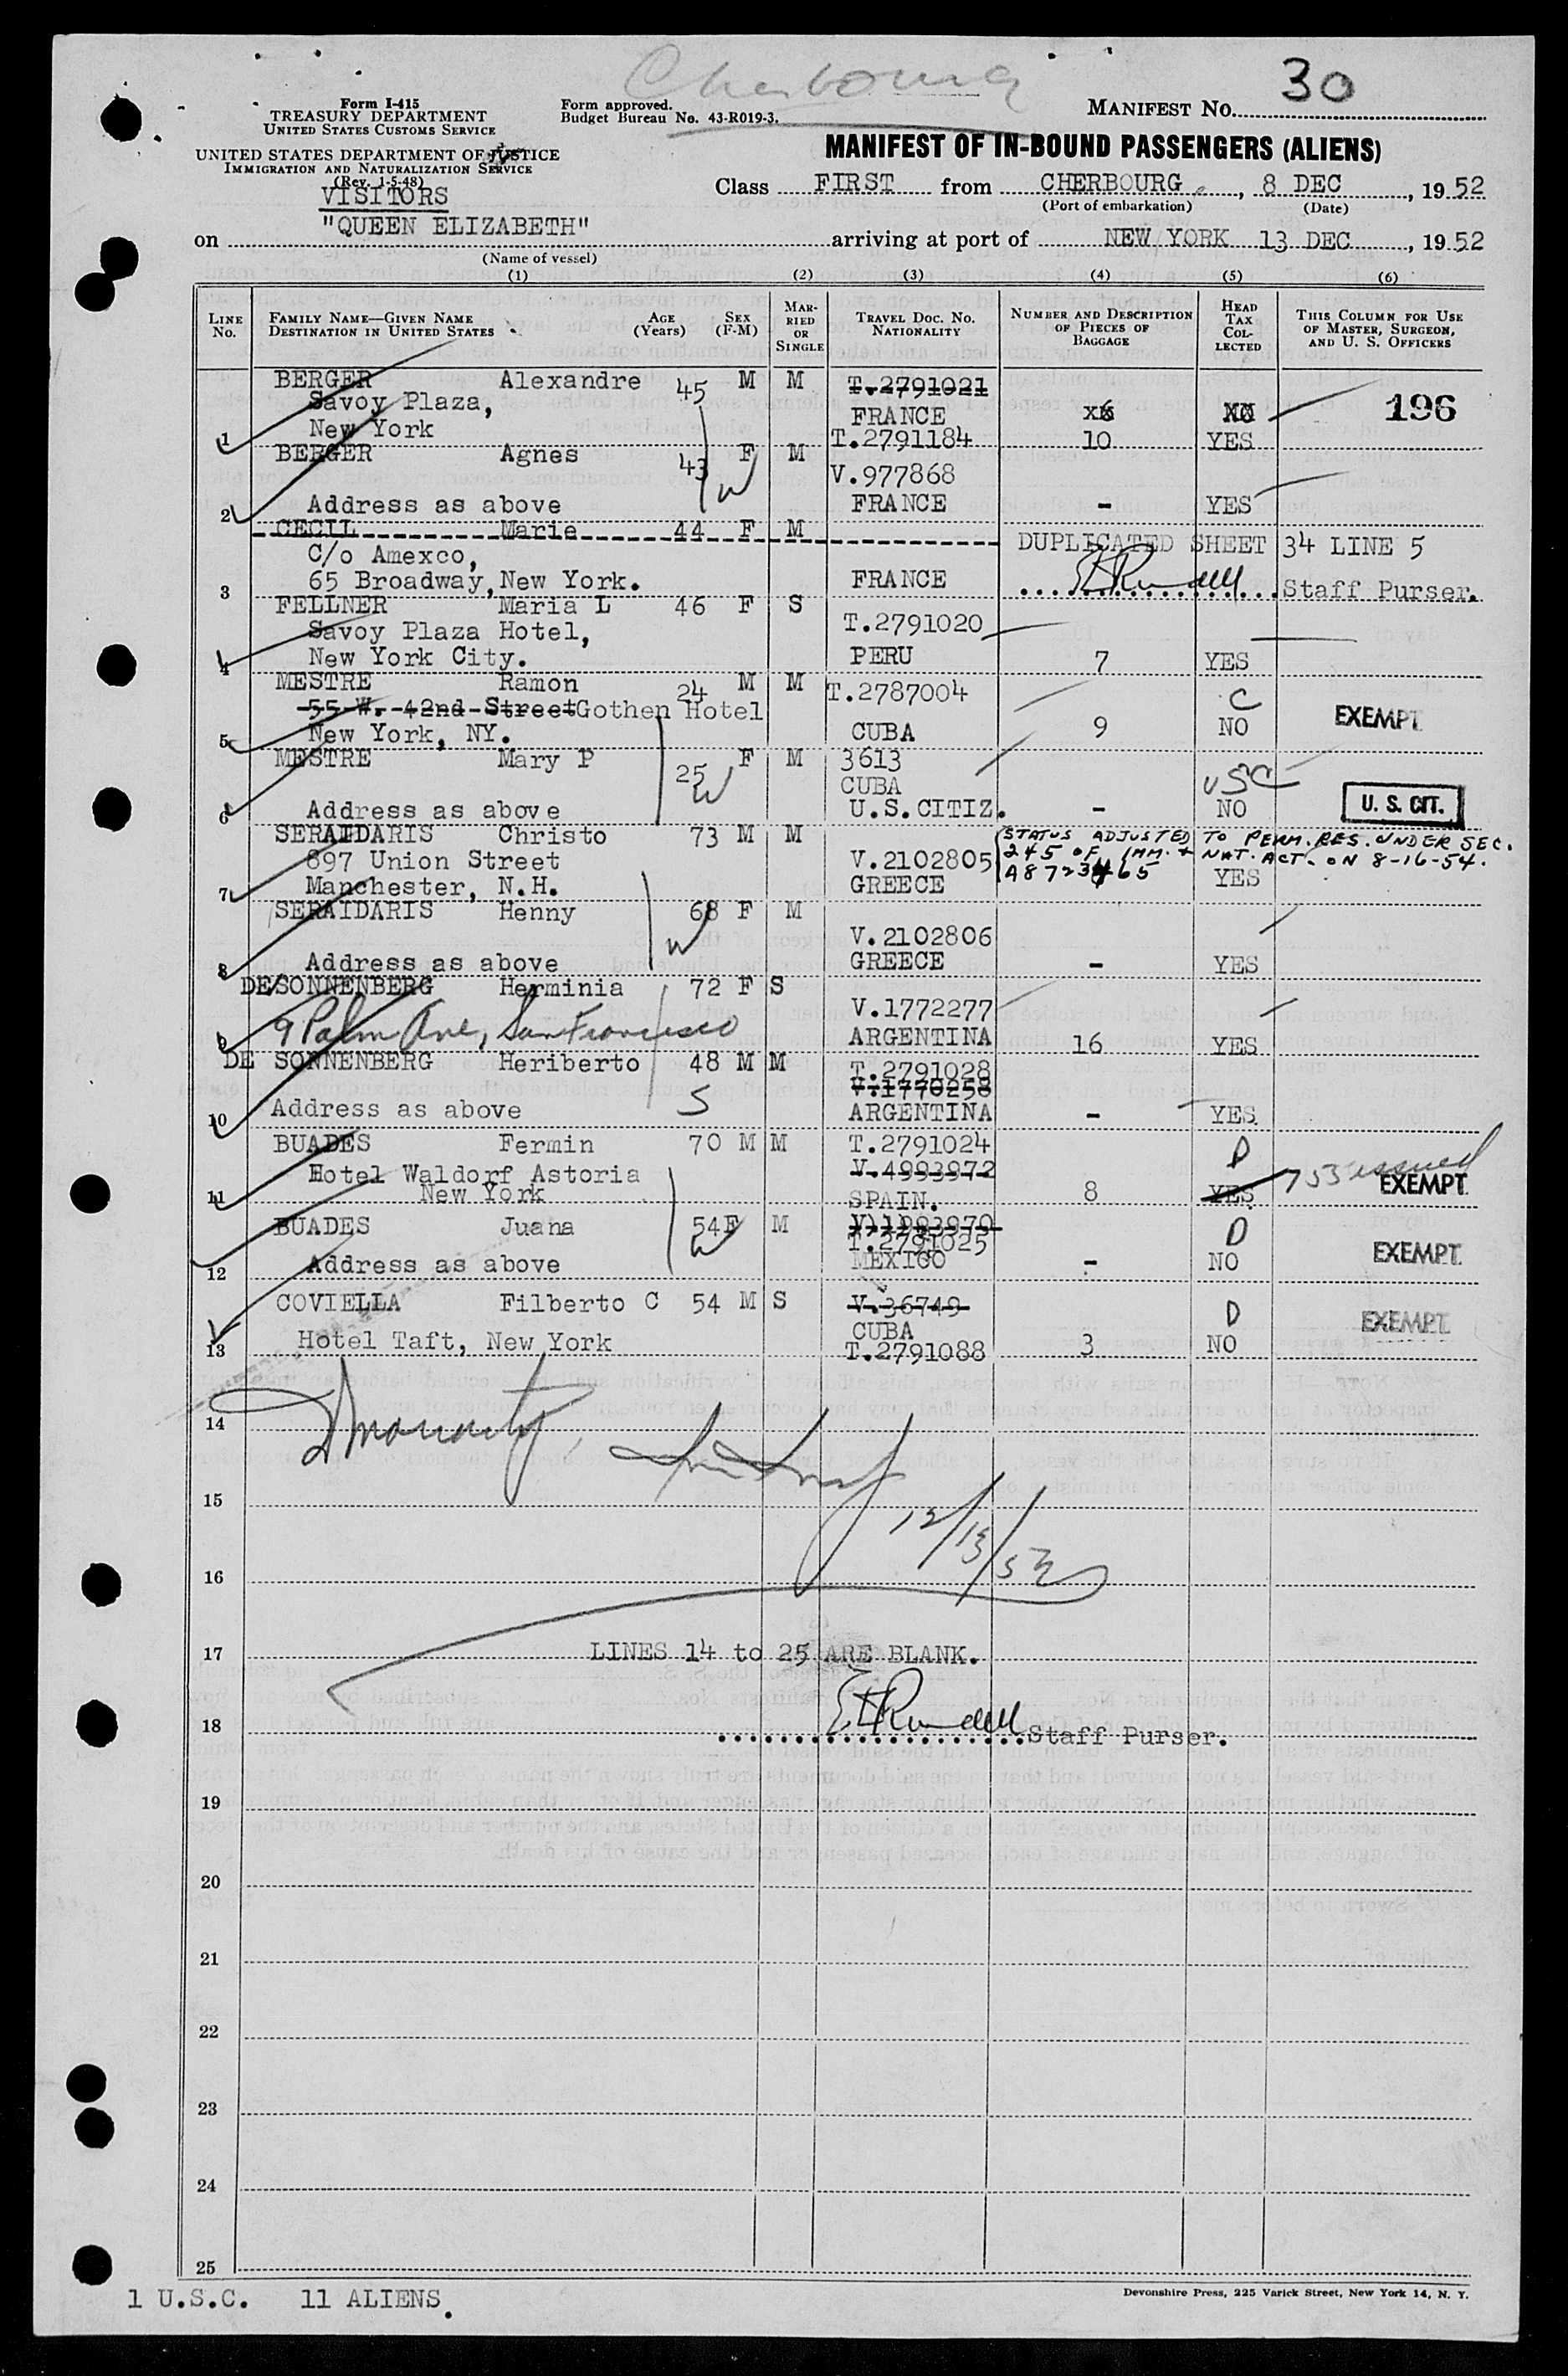 Cherbourg
30
Form I-415
TREASURY DEPARTMENT
UNITED STATES CUSTOMS SERVICE
Form approved.
Budget Bureau No. 43-R019-3.
MANIFEST NO.
UNITED STATES DEPARTMENT OF JUSTICE
IMMIGRATION AND NATURALIZATION SERVICE
(Rev. 1-5-48)
MANIFEST OF IN-BOUND PASSENGERS (ALIENS)
VISITORS
Class FIRST from CHERBOURG, 8 DEC, 1952
(Port of embarkation) (Date)
on "QUEEN ELIZABETH" arriving at port of NEW YORK 13 DEC, 1952
(Name of vessel)
(1) (2) (3) (4) (5) (6)
LINE NO.
FAMILY NAME—GIVEN NAME
DESTINATION IN UNITED STATES
AGE (Years)
SEX (F-M)
MARRIED OR SINGLE
TRAVEL DOC. NO. NATIONALITY
NUMBER AND DESCRIPTION OF PIECES OF BAGGAGE
HEAD TAX COLLECTED
THIS COLUMN FOR USE OF MASTER, SURGEON, AND U. S. OFFICERS
BERGER Alexandre 45 M M T.2791021
Savoy Plaza, FRANCE 196
1 New York T.2791184 10 YES
BERGER Agnes 43 F M V.977868
W
2 Address as above FRANCE - YES
CECIL Marie 44 F M DUPLICATED SHEET 34 LINE 5
C/o Amexco,
3 65 Broadway, New York. FRANCE EHRundell Staff Purser.
FELLNER Maria L 46 F S T.2791020
Savoy Plaza Hotel,
4 New York City. PERU 7 YES
MESTRE Ramon 24 M M T.2787004 C
55 W. 42nd Street Gothen Hotel EXEMPT
5 New York, NY. CUBA 9 NO
MESTRE Mary P 25 F M 3613
W CUBA USC
6 Address as above U.S.CITIZ. - NO U. S. CIT.
SERAIDARIS Christo 73 M M (STATUS ADJUSTED TO PERM. RES. UNDER SEC.
897 Union Street V.2102805 245 OF IMM. + NAT. ACT. ON 8-16-54.
7 Manchester, N.H. GREECE A8723465 YES
SERAIDARIS Henny 68 F M
W V.2102806
8 Address as above GREECE - YES
DE SONNENBERG Herminia 72 F S V.1772277
9 9 Palm Ave, San Francisco ARGENTINA 16 YES
DE SONNENBERG Heriberto 48 M M T.2791028
V.1770258
10 Address as above S ARGENTINA - YES
BUADES Fermin 70 M M T.2791024 D
Hotel Waldorf Astoria V.4993972 753 issued
11 New York SPAIN. 8 YES EXEMPT
BUADES Juana 54 F M D
W T.2791025 EXEMPT
12 Address as above MEXICO - NO
COVIELLA Filberto C 54 M S V.36749 D EXEMPT
CUBA
13 Hotel Taft, New York T.2791088 3 NO
14
15
12/13/52
16
17 LINES 14 to 25 ARE BLANK.
18 EHRundell Staff Purser.
19
20
21
22
23
24
25
1 U.S.C. 11 ALIENS.
Devonshire Press, 225 Varick Street, New York 14, N. Y.